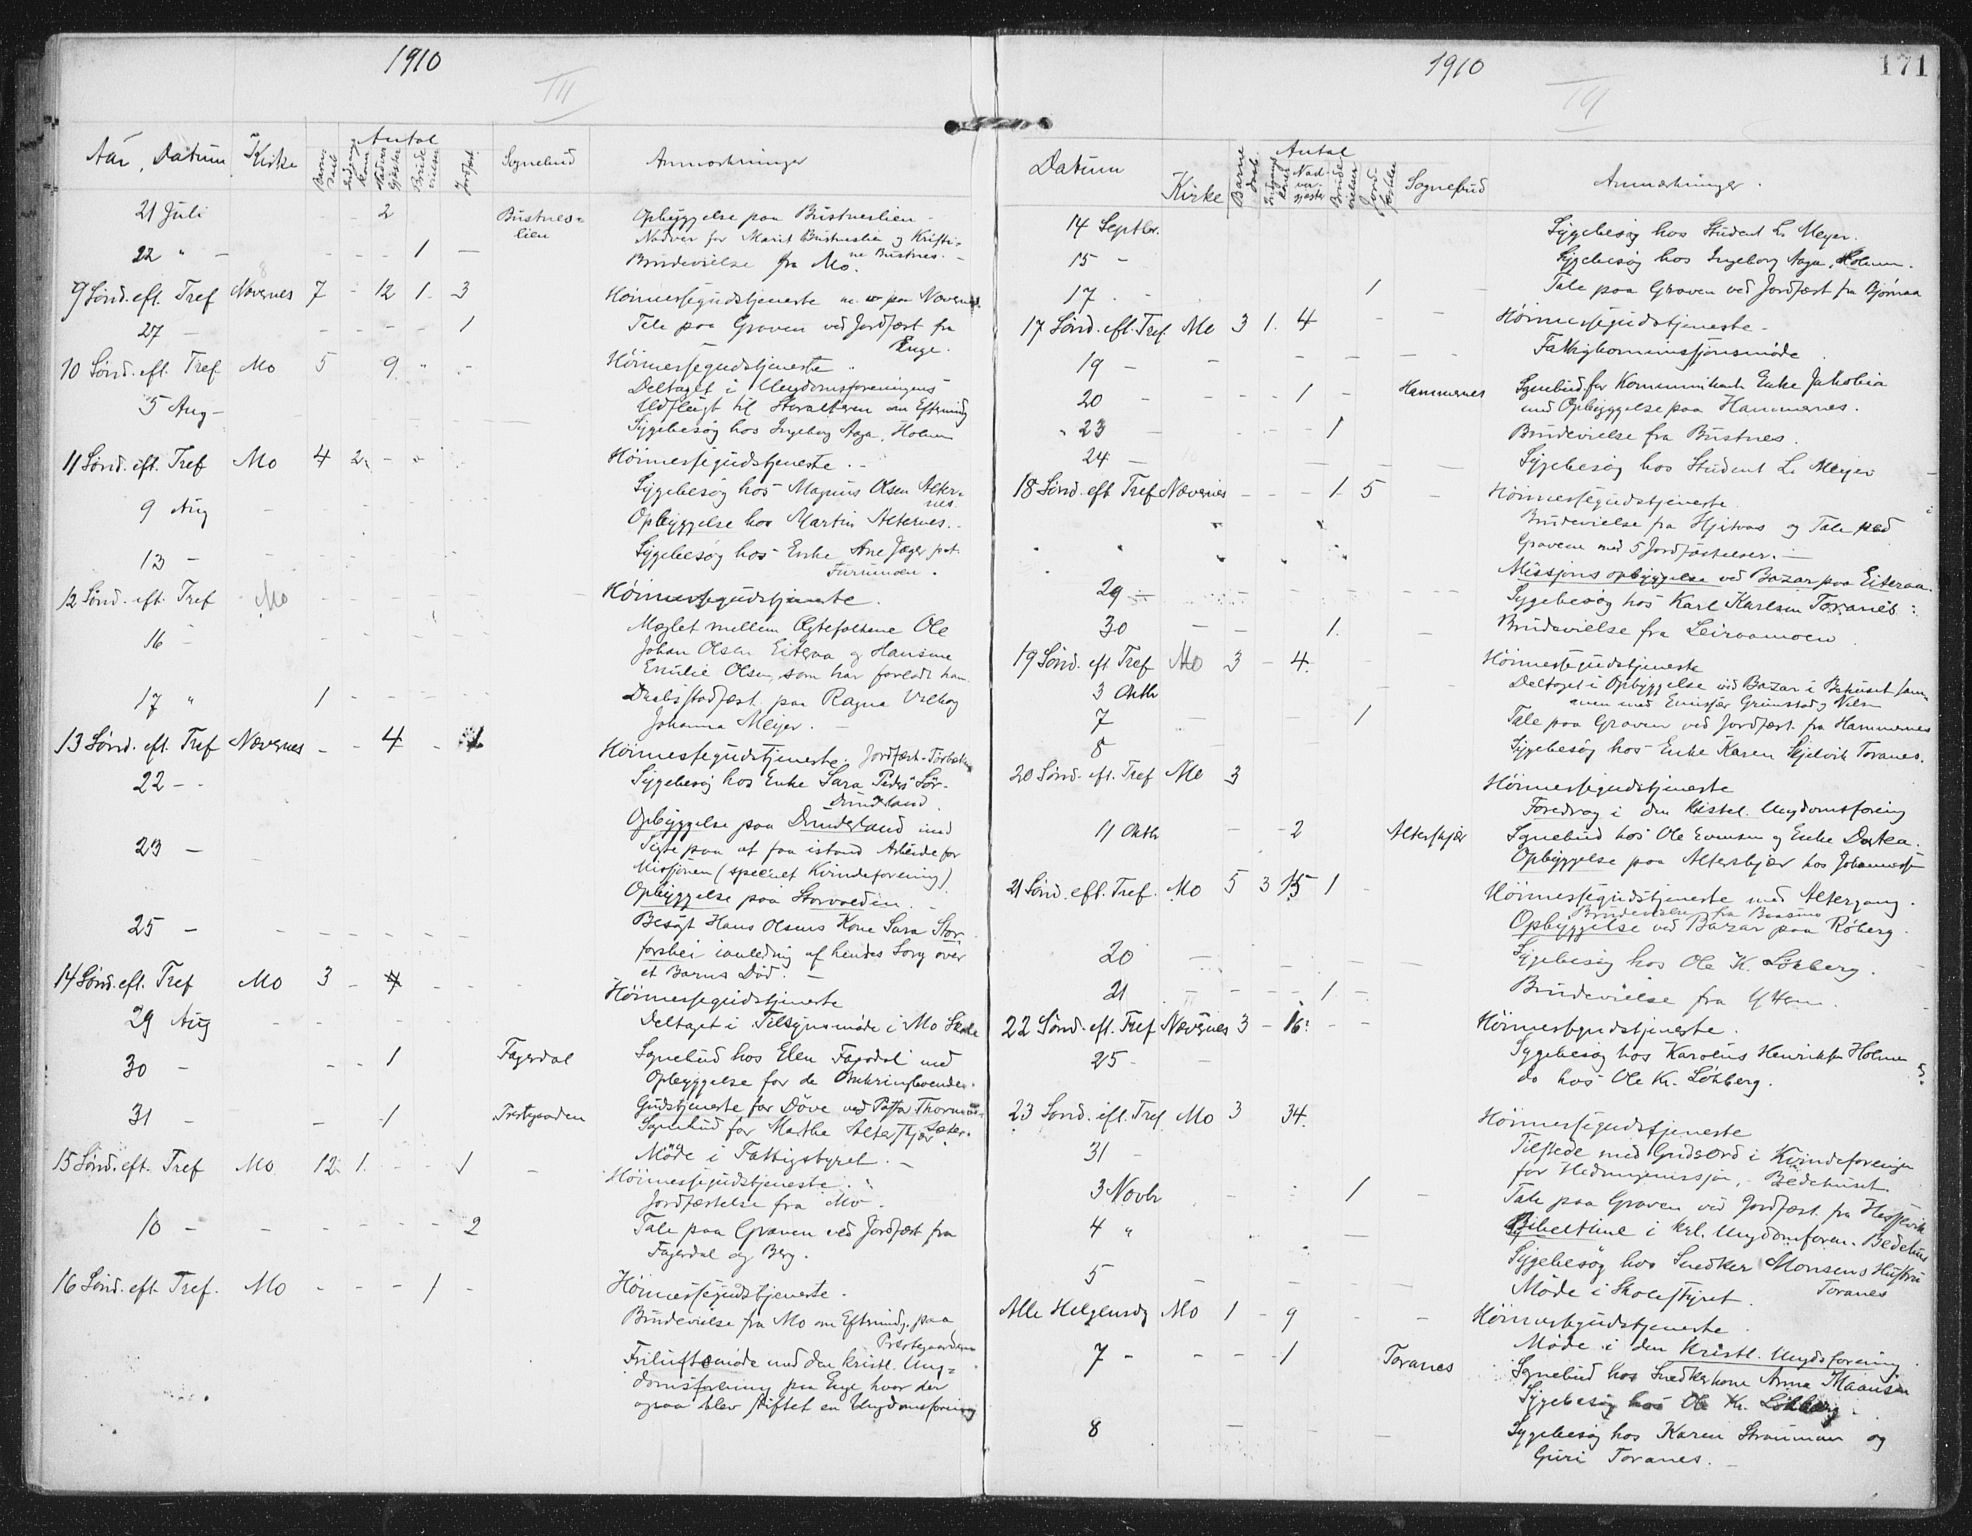 1910
III
Aar, Datum Kirke Antal Sognebud Anmærkninger
Barne daab Indgangs koner Nadver gjæster Brude vielser Jordfæst.
21 Juli - - - 2 Bustnes= Opbyggelse paa Bustneslien -
lien Nadver for Marit Bustneslien og Kristi=
ne Bustnes. -
22 " - - - - - 1 - Brudevielse fra Mo.
9 Sønd. eft. Tref Nævernes 7 - 12 1. 3 Høimessegudstjeneste paa Nævernes
27 - - - - - 1 Tale paa Graven ved Jordfæst fra
Enge.
10 Sønd. eft. Tref Mo 5 9 Høimessegudstjeneste
Deltaget i Ungdomsforeningens
5 Aug - Udflugt til Storalteren om Eftermidg
Sygebesøg hos Ingeborg Aga, Holmen
11 Sønd. eft. Tref Mo 4 2 - - Høimessegudstjeneste. -
9 Aug Sygebesøg hos Magnus Olsen Alter=
nes
Opbyggelse hos Martin Alternes. -
13 - Sygebesøg hos Enke Ane Jæger pst.
Furumoen.
12 Sønd. eft. Tref Mo Høimessegudstjeneste.
16 - Mæglet mellem Ægtefolkene Ole
Johan Olsen Eiteraa og Hansine
Emilie Olsen, som har forladt ham
17 " 1 - - - - Daabsstadfæst. paa Ragna Valborg
Johanna Meyer. -
13 Sønd. eft. Tref Nævernes - - 4 - 1 Høimessegudstjeneste. Jordfæst.
22 - - Sygebesøg hos Enke Sara Peders Sør-
Dunderland.
Opbyggelse paa Dunderland med
23 - Sigte paa at faa istand Arbeide for
Missjonen (specielt Kvindeforening)
Opbyggelse paa Storvolden. -
25 - Besøgt Hans Olsens Kone Sara Stor
forshei i anledning af hendes Sorg over
et Barns Død. -
14 Sønd. eft. Tref Mo 3 - 4 - - Høimessegudstjeneste
29 Aug Deltaget i Tilsynsmøde i Mo Skole
30 - - - 1 Fagerdal Sognebud hos Elen Fagerdal med
Opbyggelse for de Omkringboende.
Gudstjeneste for Døve ved Pastor
31 - - 1 Sognebud for Martha Alterskjær.
Møde i Fattigstyret. -
15 Sønd. eft. Tref Mo 12 1. 1 - Høimessegudstjeneste.
Jordfæstelse fra Mo.
10 - - - - - - 2 Tale paa Graven ved Jordfæst fra
Fagerdal og Berg.
16 Sønd. eft. Tref. Mo - - - 1 - Høimessegudstjeneste.
Brudevielse fra Mo om Eftermidg. paa
Præstegaarden
Friluftsmøde med den kristl. Ung=
domsforening paa Enge hvor der
ogsaa blev stiftet en Ungdomsforening
1910
171
Datum Kirke Antal Sognebud Anmærkninger.
Barne daab Indgangs koner Nad-ver-gjæster Brude vielser Jord fæstelse
14 Septbr. Sygebesøg hos Student L. Meyer.
15 - Sygebesøg hos Ingeborg Aga, Holmen.
17 - 1 Tale paa Graven ved Jordfæst fra Bjørnaa
17 Sønd. eft. Tref Mo 3 1. 4 - - Høimessegudstjeneste -
19 - Fattigkommissjonsmøde
20 - - - - 1 - Hammernes Sognebud for Enke Jakobia
med Opbyggelse paa Hammernes.
23 - 1 Brudevielse fra Bustnes.
24 - Sygebesøg hos Student L. Meyer
18 Sønd. eft Tref Nævernes - - - 1 5 - Høimessegudstjeneste
Brudevielse fra og Tale ved
Graven med 5 Jordfæstelser. -
Missjonsopbyggelse ved Bazar paa Eiteraa
29 - Sygebesøg hos Karl Karlsen Toranes
30 - - 1. - Brudevielse fra Leiraamoen
19 Sønd. eft Tref Mo 3 - 4. Høimessegudstjeneste
3 Oktb Deltaget i Opbyggelse ved Bazar i Behuset sam=
men med Emissær Grimstad og Nilsen
7 - 1 Tale paa Graven ved Jordfæst. fra Hammernes
8 Sygebesøg hos Enke Karen Skjelvik Toranes.
20 Sønd. eft. Tref Mo 3 Høimessegudstjeneste
Foredrag i den kristel. Ungdomsforening
11 Oktb - - 2 Alterskjær Sognebud hos Ole Evensen og Enke Dortea.
Opbyggelse paa Alterskjær hos
21 Sønd. eft. Tref. Mo 5 3 15 1 - Høimessegudstjeneste med Altergang.
Brudevielse fra
Opbyggelse ved Bazar paa Røberg.
20 - Sygebesøg hos Ole K. Løkberg.
21 - - - - 1 - Brudevielse fra Ytteren.
22 Sønd. eft. Tref Nævernes 3 - 16 - - Høimessegudstjeneste.
25 - - Sygebesøg hos Karolius Henriksen Holmen
do hos Ole Kr. Løkberg.
23 Sønd. eft. Tref Mo 3 34. Høimessegudstjeneste
31 - Tilstede med Gudsord i Kvindeforeningen
for Hedningemissjon, Bedehuset.
3 Novbr - - 1 - Tale paa Graven ved Jordfæst. fra
4 " Bibeltime i krl. Ungdomsforen. Bedehus
5 - Sygebesøg hos Snedker Monsens Hustru
Toranes
Møde i Skolestyret.
Alle Helgensdg Mo 1 - 9 - - Høimessegudstjeneste.
Møde i den Kristl. Ungdsforening.
7 - - - - 1 Toranes Sognebud hos Snedkerkone Anna
Sygebesøg hos Ole Kr. Løkberg -
8 - - Sygebesøg hos Karen Straumen og
Guri Toranes. -